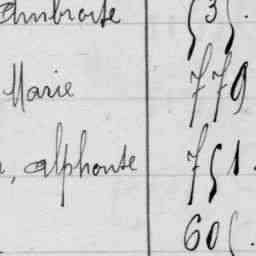 Ambroise 535.
Marie 779
, Alphonse 751.
605.